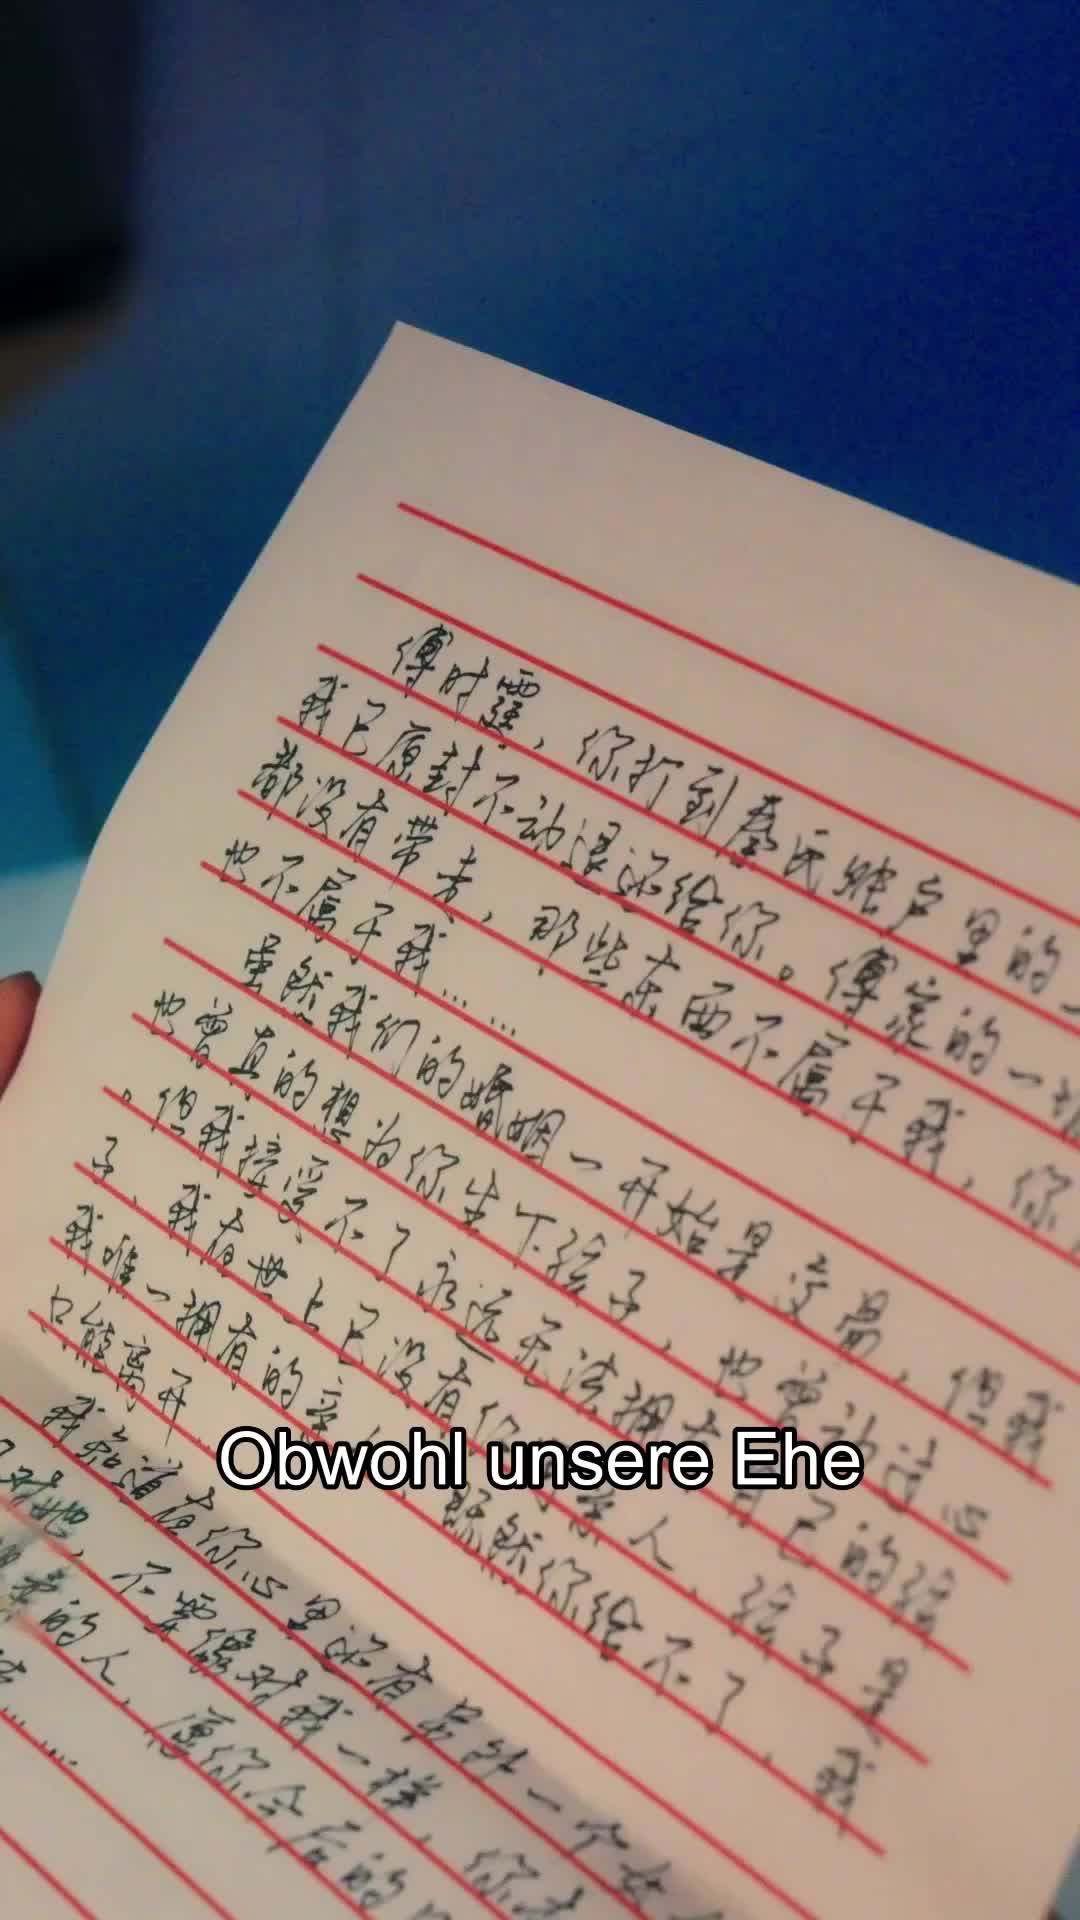 傅时霆，你打到秦氏账户里的一
我已原封不动退还给你。傅家的一切
都没有带走，那些东西不属于我，你
也不属于我……
虽然我们的婚姻一开始是交易，但我
也曾真的想为你生下孩子，也曾动过心
。但我接受不了永远无法拥有自己的孩
子，我在世上已没有任何亲人，孩子是
我唯一拥有的亲人 既然你给不了，我
只能离开
我知道在你心里还有另外一个女
对她，不要像对我一样，你才
的人，愿你今后的
Obwohl unsere Ehe